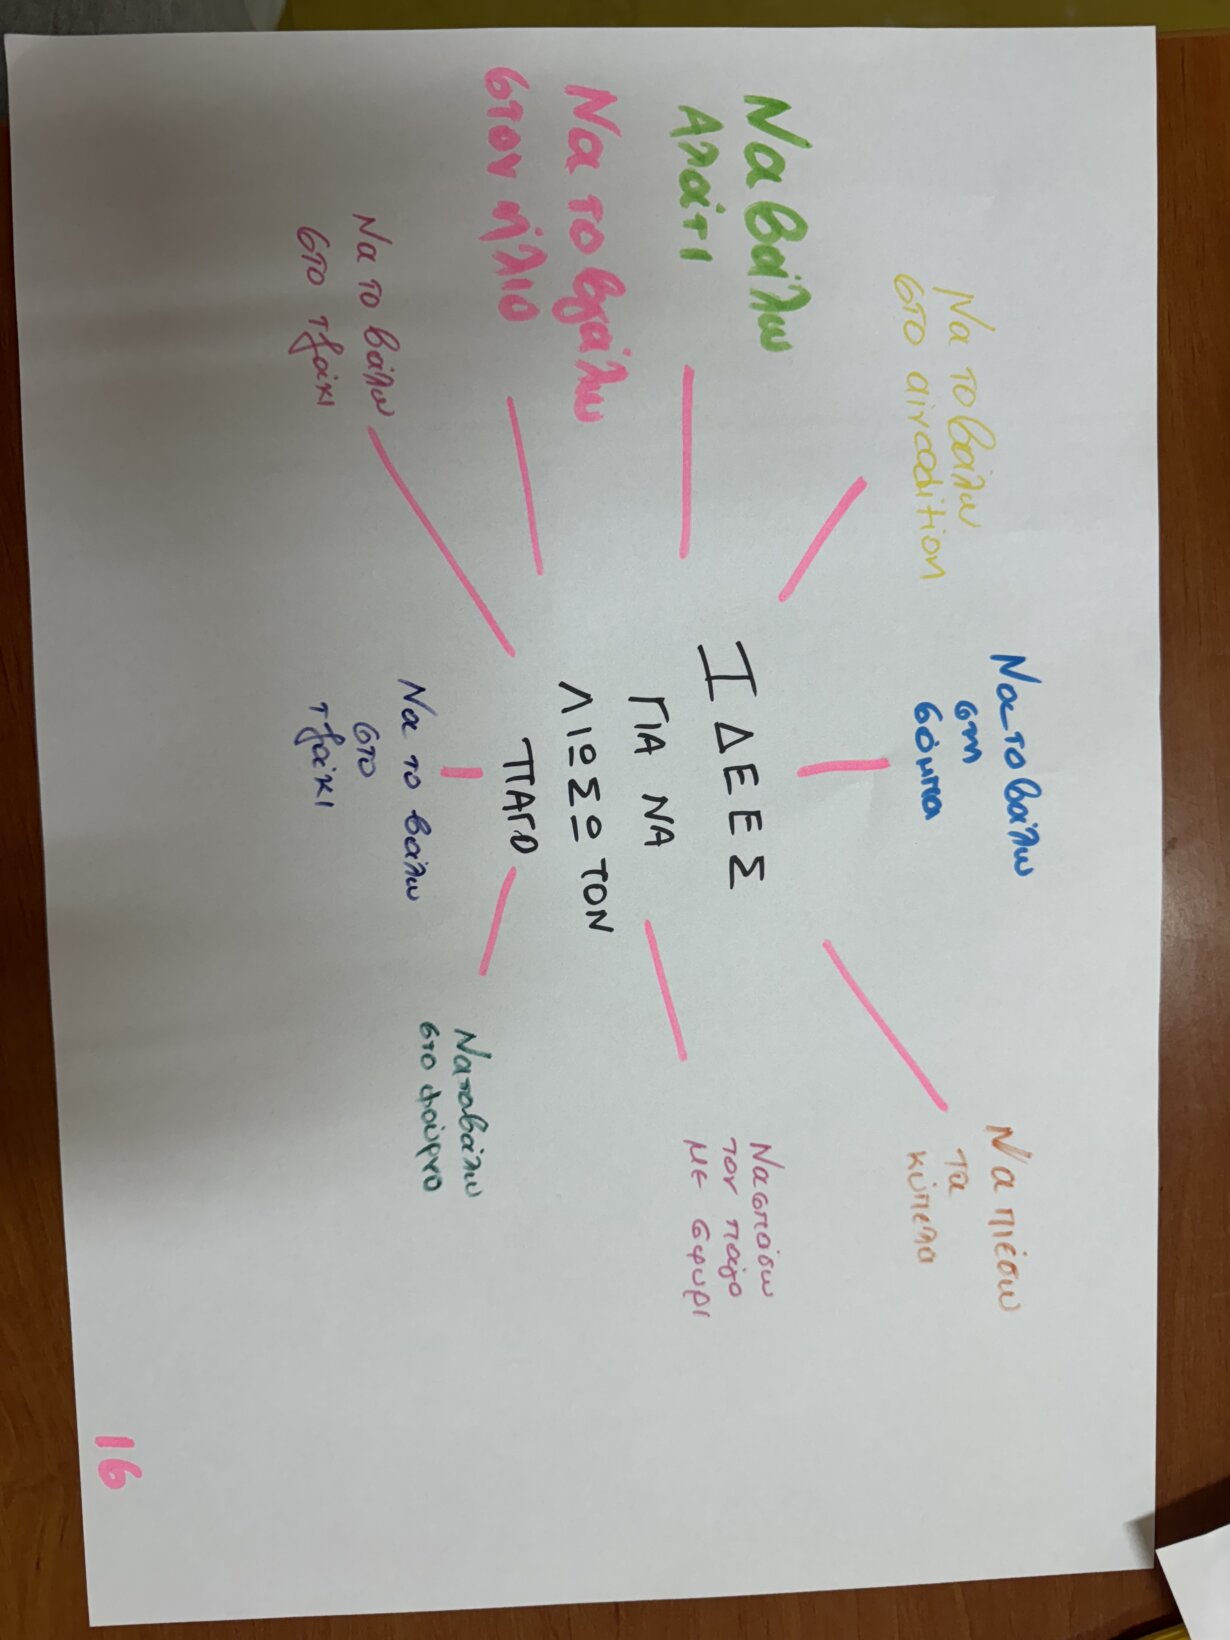 ΙΔΕΕΣ
ΓΙΑ ΝΑ
ΛΙΩΣΩ ΤΟΝ
ΠΑΓΟ
Να το βάλω
στο aircodition
Να το βάλω
στη
σόμπα
Να πιέσω
τα
κύπελα
Να σπάσω
τον πάγο
με σφυρι
Να το βάλω
στο φούρνο
Να το βάλω
στο
τζάκι
Να το βάλω
στο τζάκι
Να το βγάλω
στον ήλιο
Να βάλω
Αλάτι
16